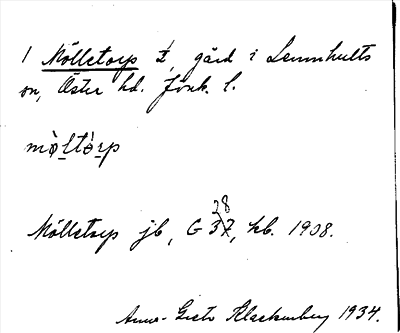 1 Mölletorp ½, gård i Lemnhults
sn, Öster hd. Jönk. l.
mø̀ltòrp
Mölletorp jb, G 28
37, kb. 1908.
Anna-Greta Klackenberg 1934.